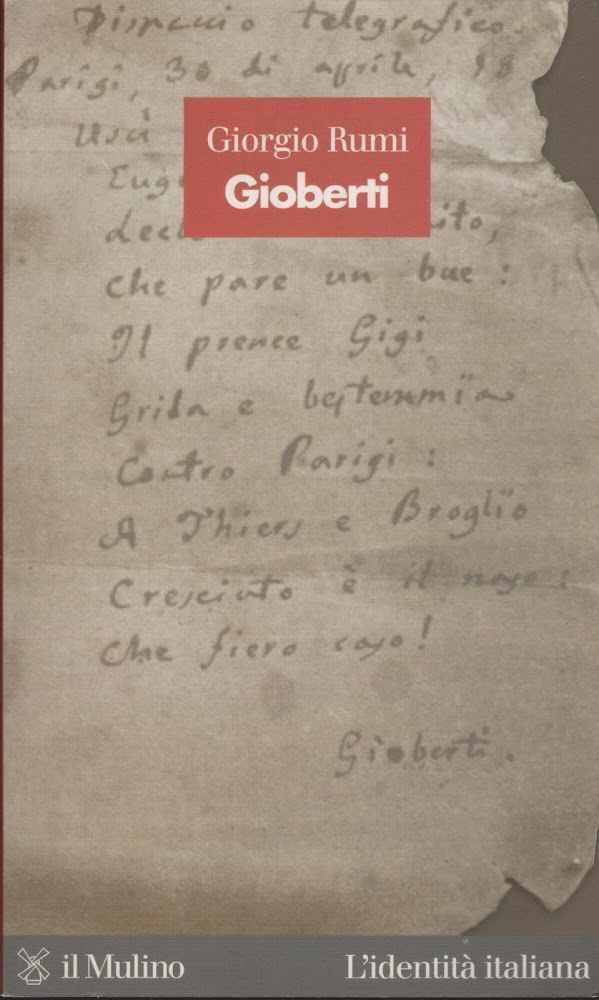 Dispaccio telegrafico.
Parigi, 30 di aprile, 18
Usù
Giorgio Rumi
Gioberti
Euge
ito,
che pare un bue:
Il prence Gigi
Grida e bestemmïa
Contro Parigi:
A Thiers e Broglïo
Cresciuto è il naso:
Che fiero caso!
Gioberti.
il Mulino
L'identità italiana